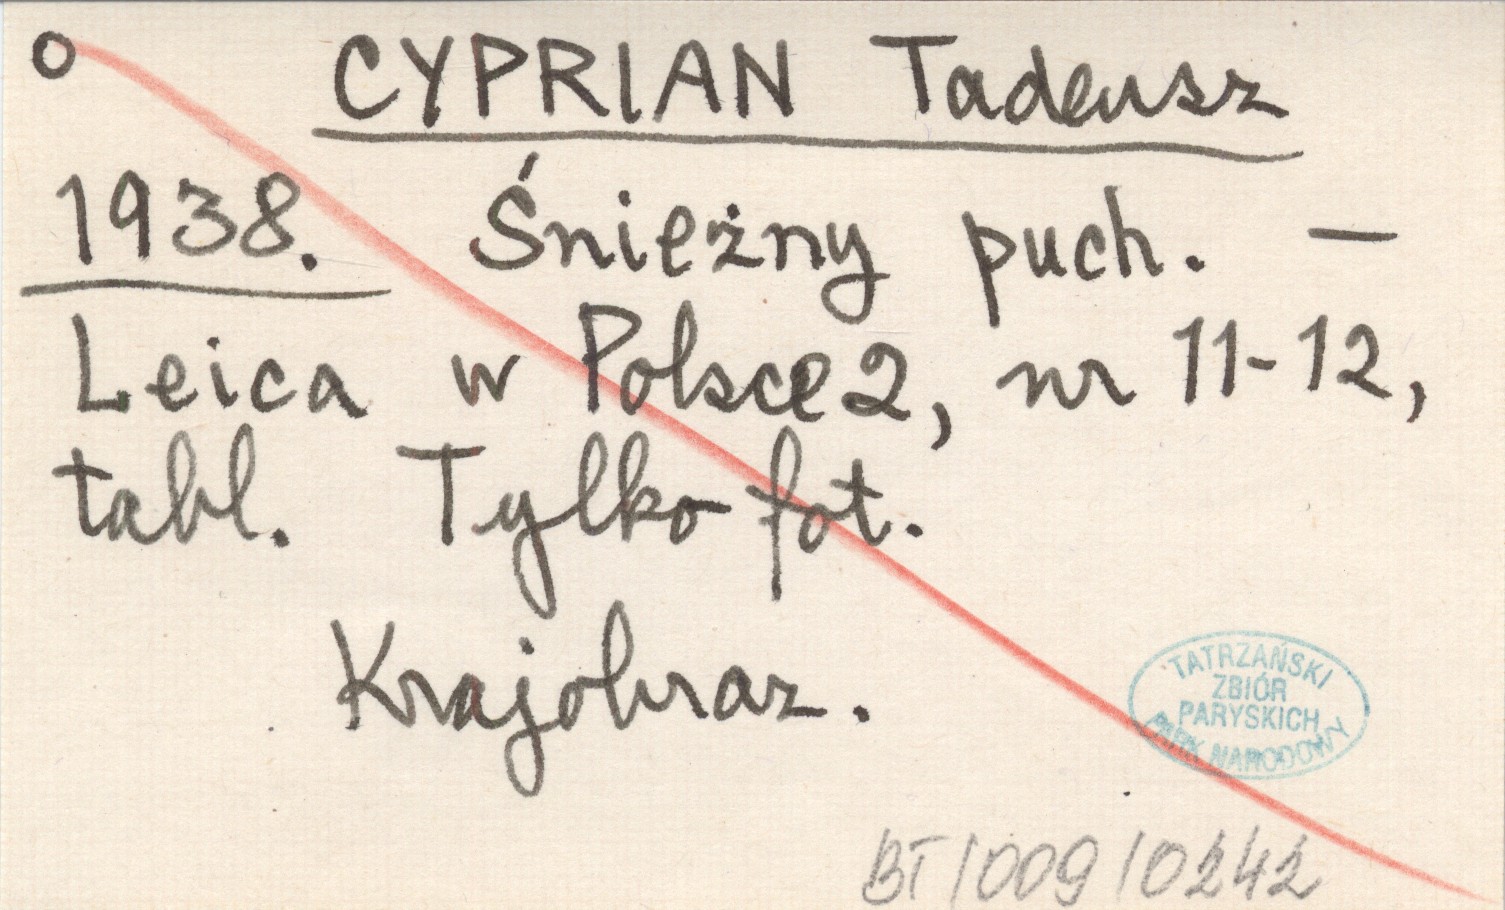 o CYPRIAN Tadeusz
1938. Śnieżny puch. —
Leica w Polsce 2, nr 11-12,
tabl. Tylko fot.
Krajobraz.
TATRZAŃSKI
ZBIÓR
PARYSKICH
PARK NARODOWY
BT/009/0242